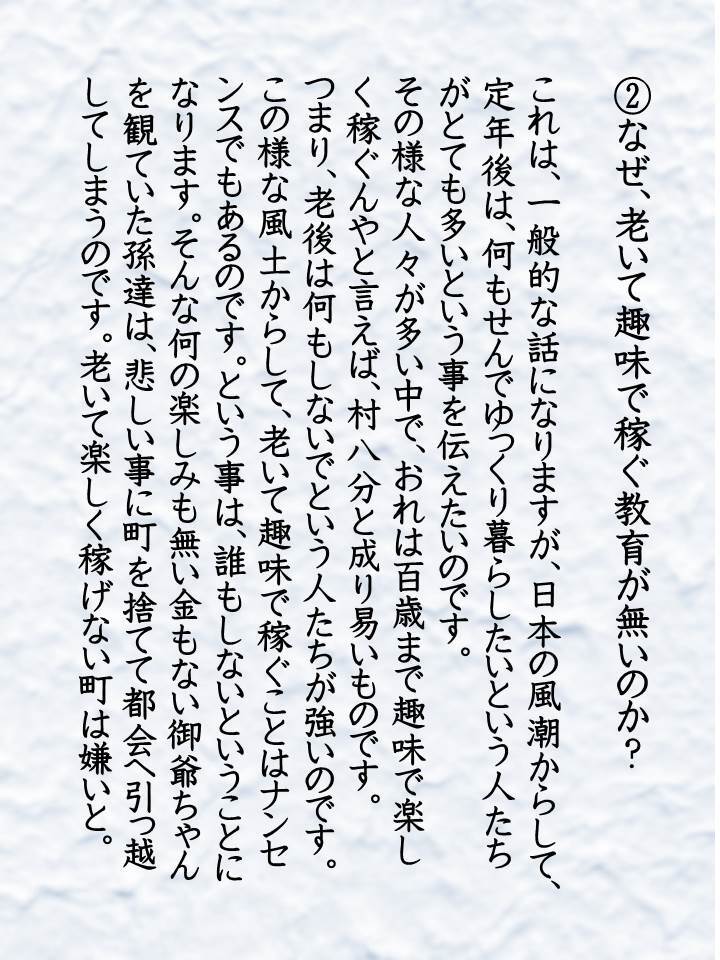 ②なぜ、老いて趣味で稼ぐ教育が無いのか?
これは、一般的な話になりますが、日本の風潮からして、
定年後は、何もせんでゆっくり暮らしたいという人たち
がとても多いという事を伝えたいのです。
その様な人々が多い中で、おれは百歳まで趣味で楽し
く稼ぐんやと言えば、村八分と成り易いものです。
つまり、老後は何もしないでという人たちが強いのです。
この様な風土からして、老いて趣味で稼ぐことはナンセ
ンスでもあるのです。という事は、誰もしないということに
なります。そんな何の楽しみも無い金もない御爺ちゃん
を観ていた孫達は、悲しい事に町を捨てて都会へ引っ越
してしまうのです。老いて楽しく稼げない町は嫌いと。